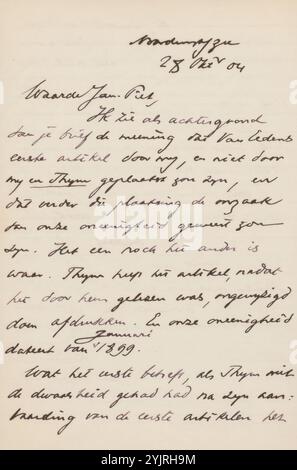 Noordwijk/zee
28 Oktr 04
Waarde Jan-Piet,
Ik zie als achtergrond
van je brief de meening dat Van Eedens
eerste artikel door my, en niet door
my en Thym geplaatst zou zyn, en
dat onder die plaatsing de oorzaak
van onze oneenigheid geweest zou
zyn. Het een noch het ander is
waar. Thym heeft het artikel, nadat
het door hem gelezen was, ongewyzigd
doen afdrukken. En onze oneenigheid
Januari
dateert van '1899.
Wat het eerste betreft, als Thym niet
de dwaasheid gehad had na zyn aan-
vaarding van de eerste artikelen het
alamy
Image ID: 2YJRH9M
www.alamy.com